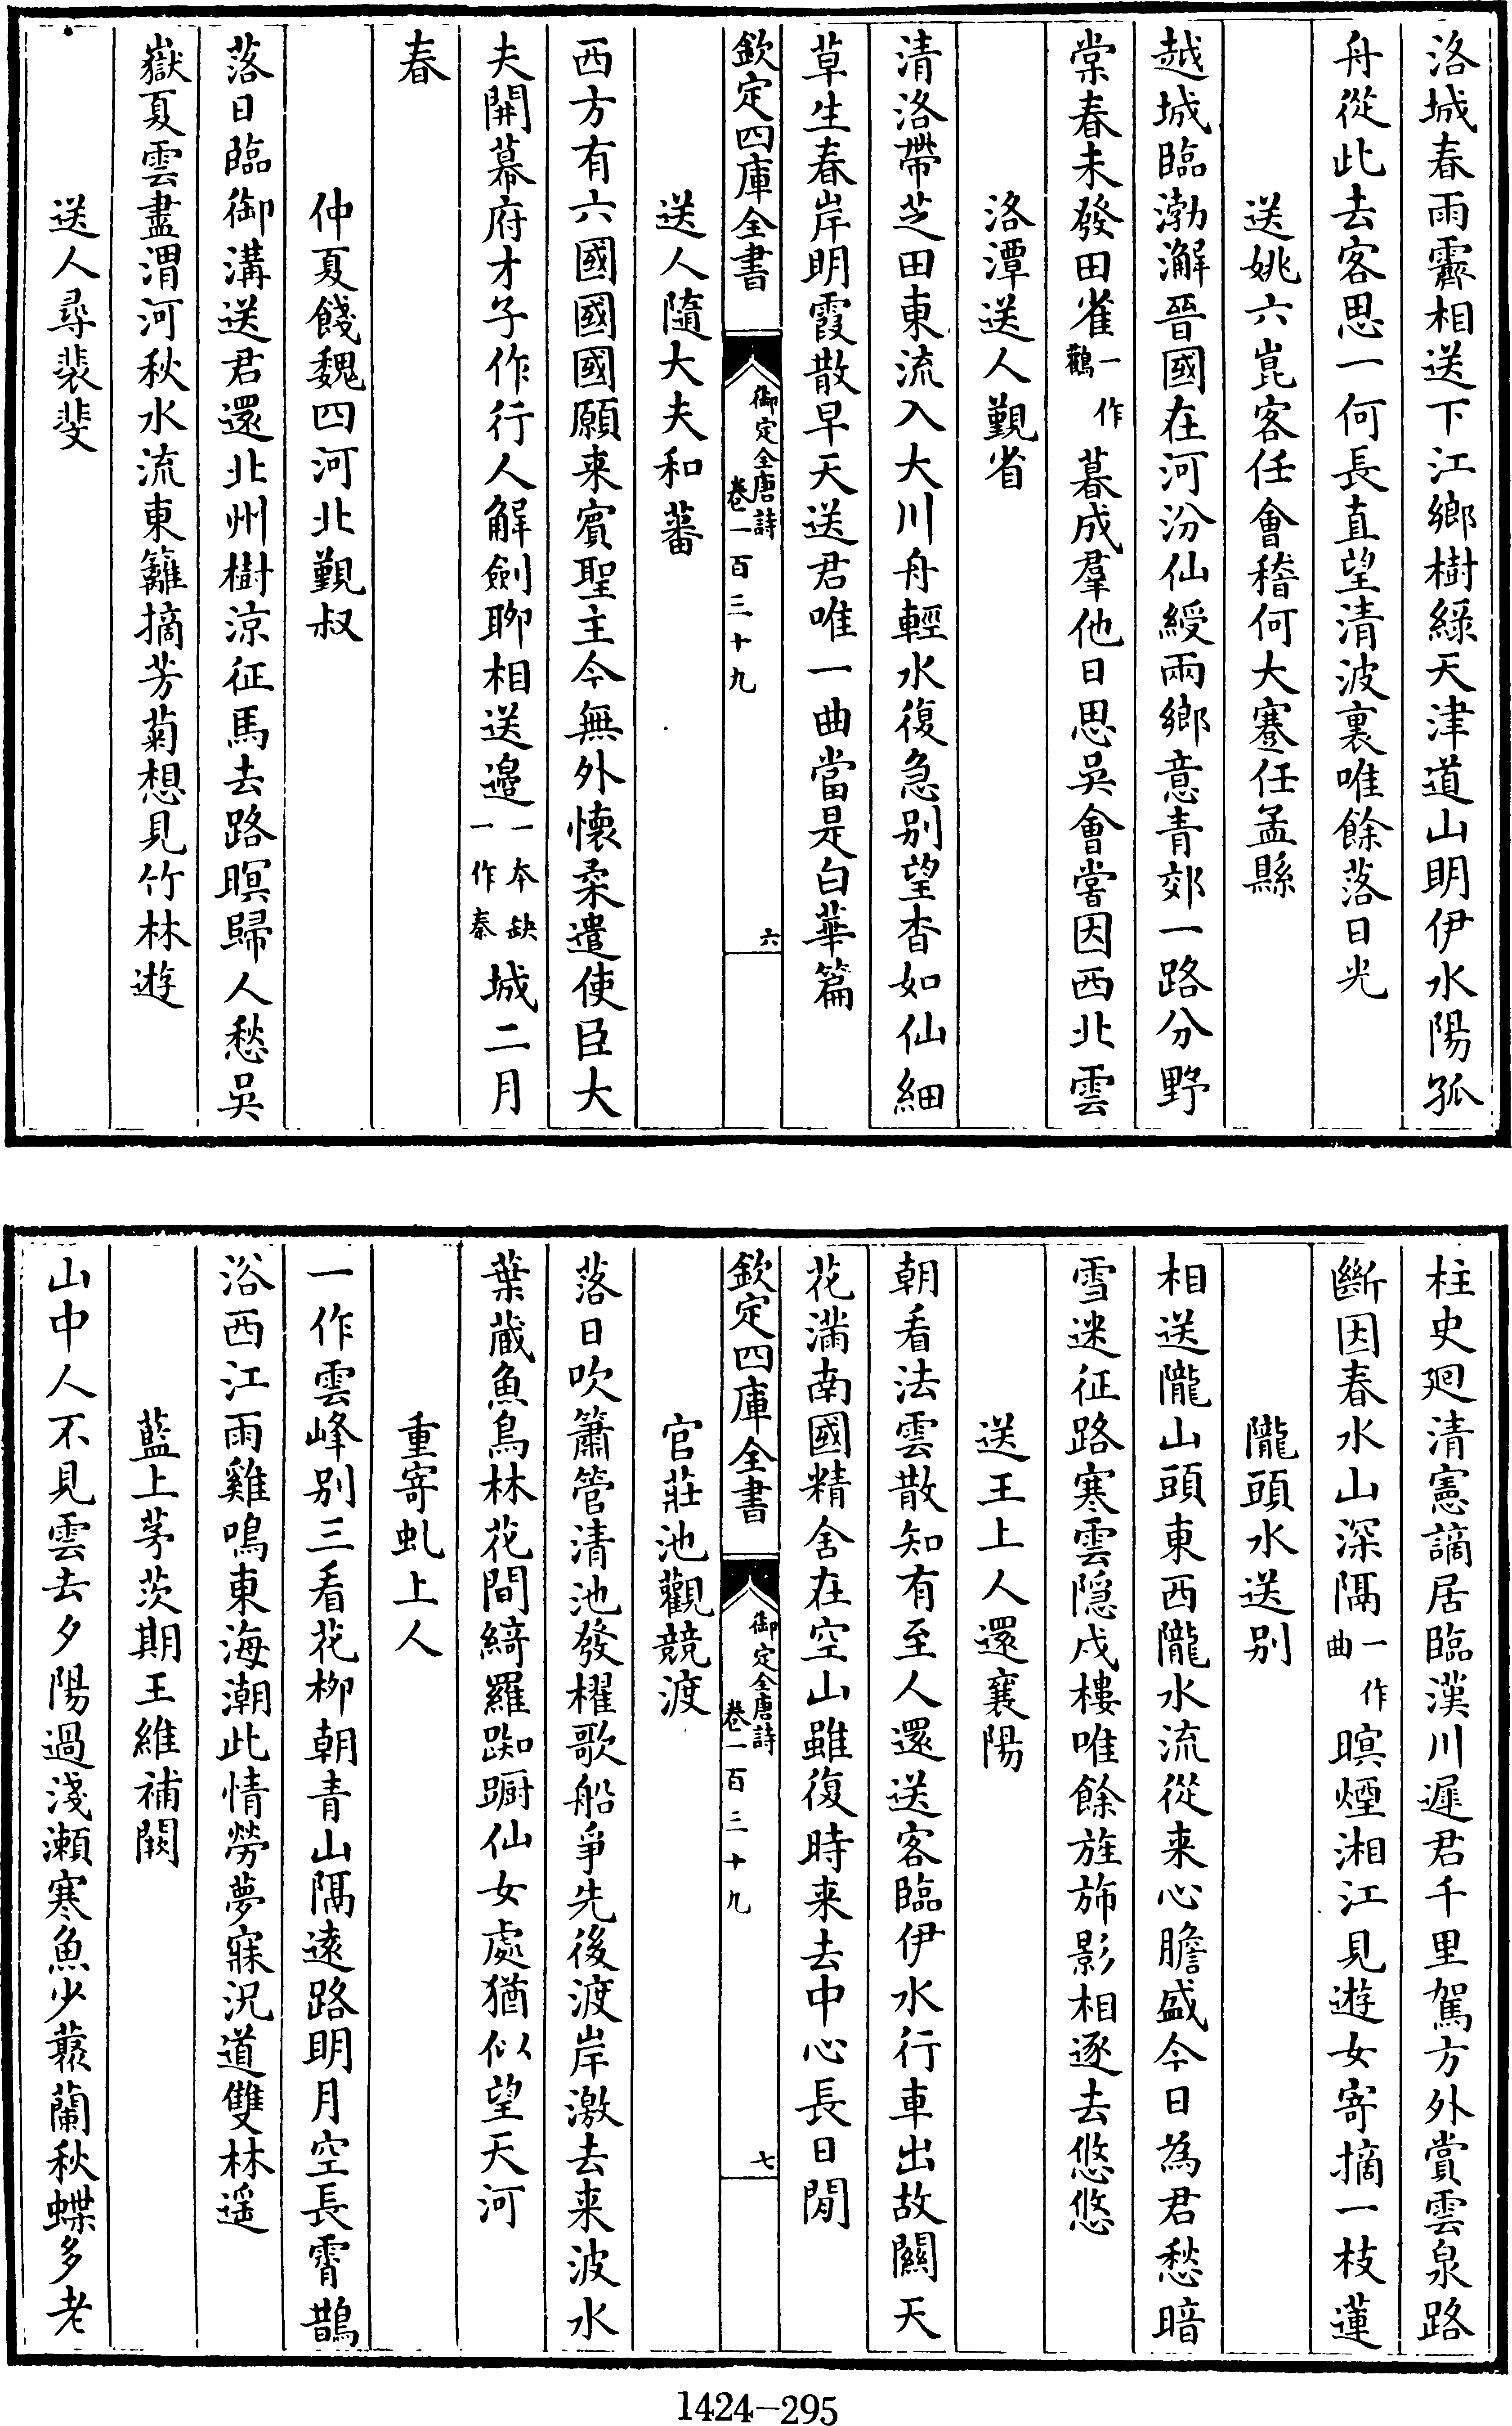 洛城春雨霽相送下江鄉樹綠天津道山明伊水陽孤
舟從此去客思一何長直望清波裏唯餘落日光
送姚六崑客任會稽何大蹇任孟縣
越城臨渤澥晉國在河汾仙綬兩鄉意青郊一路分野
棠春未發田雀一作鸛暮成羣他日思吳會嘗因西北雲
洛潭送人覲省
清洛帶芝田東流入大川舟輕水復急別望杳如仙細
草生春岸明霞散早天送君唯一曲當是白華篇
欽定四庫全書
御定全唐詩
卷一百三十九
六
送人隨大夫和蕃
西方有六國國國願来賓聖主今無外懷柔遣使臣大
夫開幕府才子作行人解劍聊相送邉一本缺一作秦城二月
春
仲夏餞魏四河北覲叔
落日臨御溝送君還北州樹涼征馬去路暝歸人愁吳
嶽夏雲盡渭河秋水流東籬摘芳菊想見竹林遊
送人尋裴斐
柱史廻清憲謫居臨漢川遲君千里駕方外賞雲泉路
斷因春水山深隔一作曲暝煙湘江見遊女寄摘一枝蓮
隴頭水送別
相送隴山頭東西隴水流從来心膽盛今日為君愁暗
雪迷征路寒雲隱戍樓唯餘旌斾影相逐去悠悠
送王上人還襄陽
朝看法雲散知有至人還送客臨伊水行車出故關天
花滿南國精舍在空山雖復時来去中心長日閒
欽定四庫全書
御定全唐詩
卷一百三十九
七
官莊池觀競渡
落日吹簫管清池發櫂歌船爭先後渡岸激去来波水
葉蔵魚鳥林花間綺羅踟蹰仙女處猶似望天河
重寄虬上人
一作雲峰別三看花柳朝青山隔遠路明月空長霄鵲
浴西江雨雞鳴東海潮此情勞夢寐況道雙林遥
藍上茅茨期王維補闕
山中人不見雲去夕陽過淺瀨寒魚少藂蘭秋蝶多老
1424-295